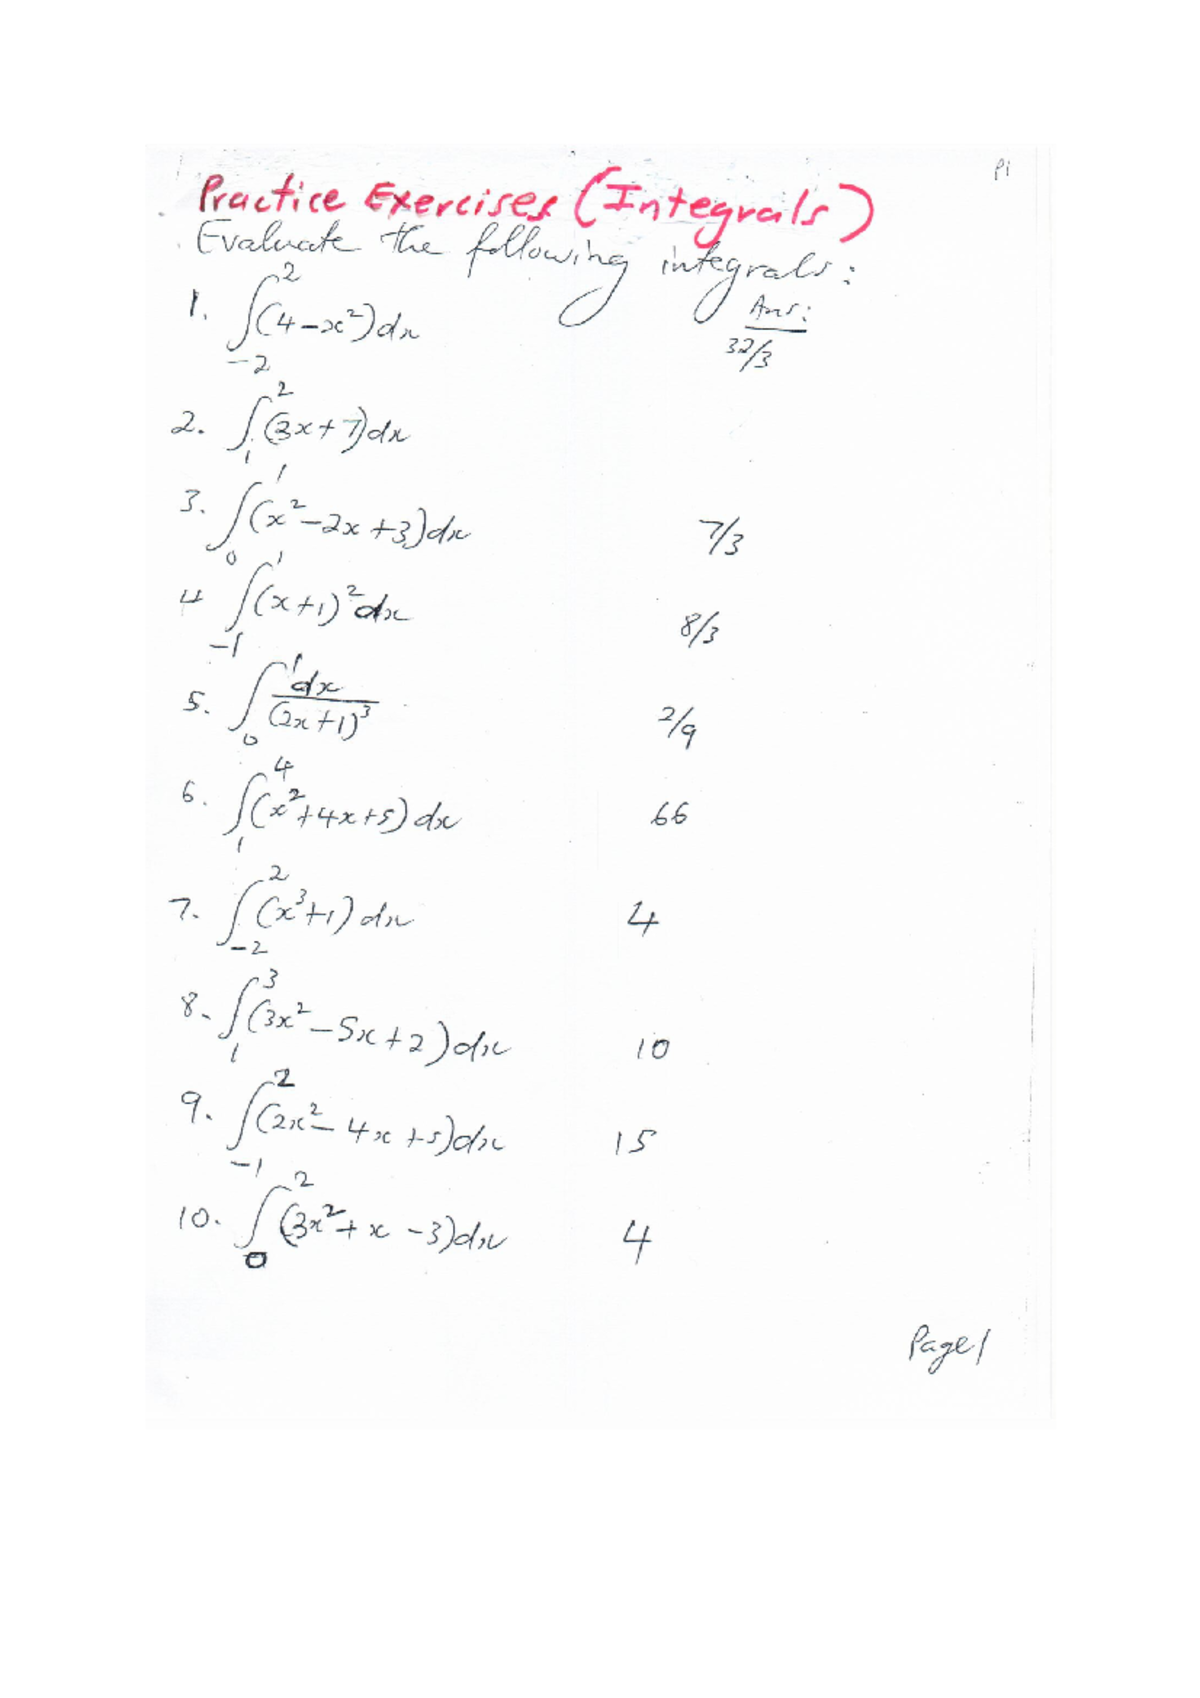 P1
Practice Exercises (Integrals)
Evaluate the following integrals:
Ans:
1. ∫₋₂² (4-x²)dx 32/3
2. ∫₁² (3x+7)dx
3. ∫₀¹ (x²-2x+3)dx 7/3
4 ∫₋₁¹ (x+1)²dx 8/3
5. ∫₀¹ dx/(2x+1)³ 2/9
6. ∫₁⁴ (x²+4x+5)dx 66
7. ∫₋₂² (x³+1)dx 4
8. ∫₁³ (3x²-5x+2)dx 10
9. ∫₋₁² (2x²-4x+5)dx 15
10. ∫₀² (3x²+x-3)dx 4
Page 1